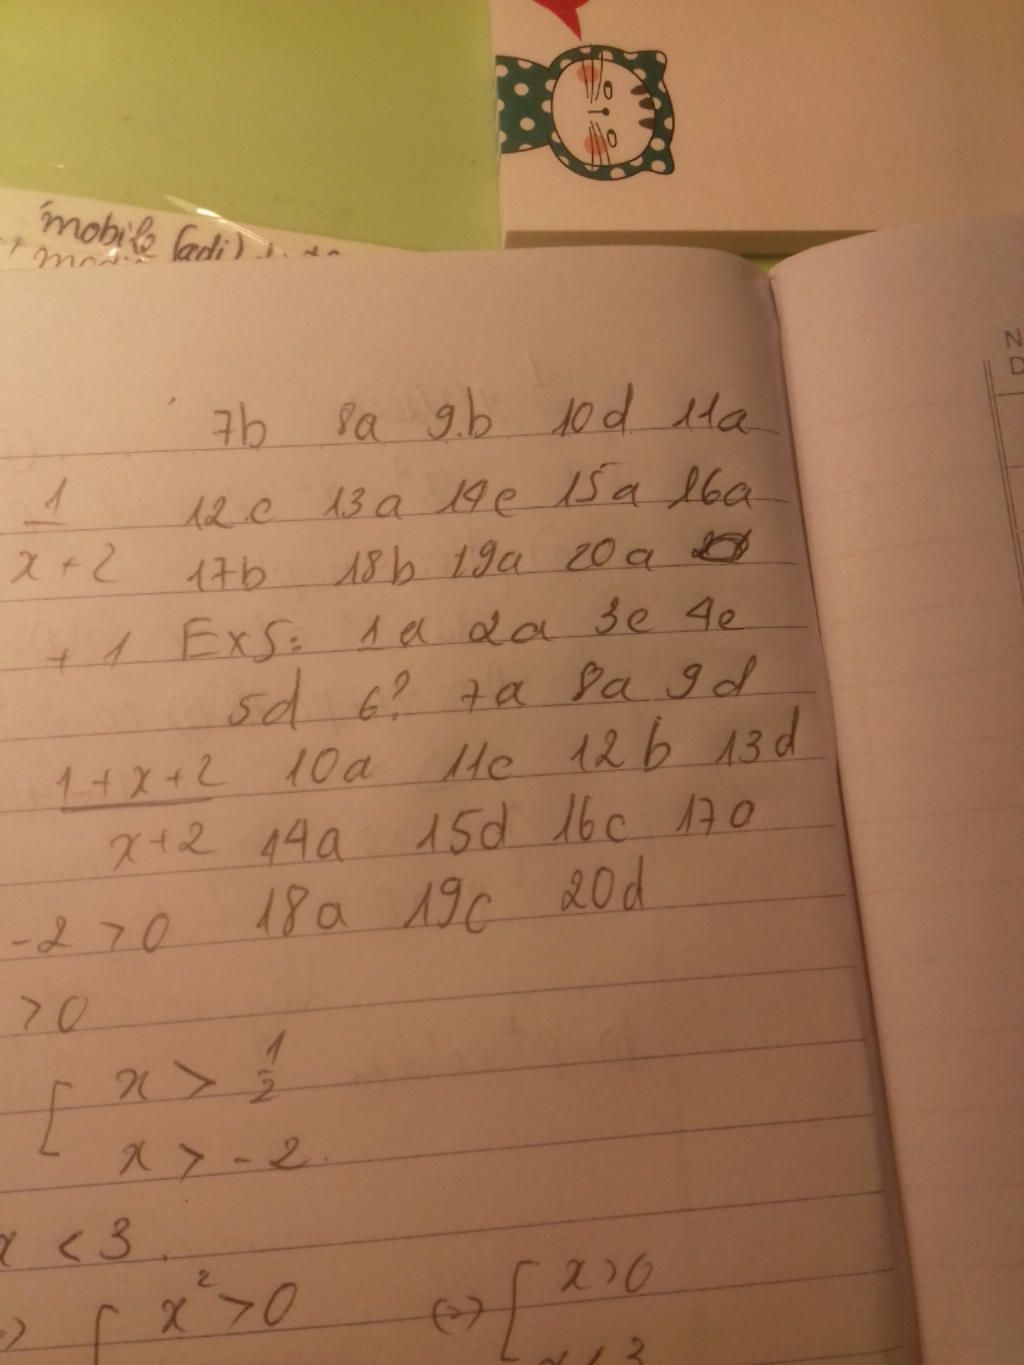 mobile (adj)
7b 8a 9.b 10d 11a
1 12.c 13a 14c 15a 16a
x+2 17b 18b 19a 20a
+ 1 Ex5: 1d 2a 3c 4c
5d 6? 7a 8a 9d
1+x+2 10a 11c 12b 13d
x+2 14a 15d 16c 17a
-2 > 0 18a 19c 20d
> 0
[ x > 1/2
x > -2.
x < 3.
[ x² > 0 (=) [ x > 0
x < 3